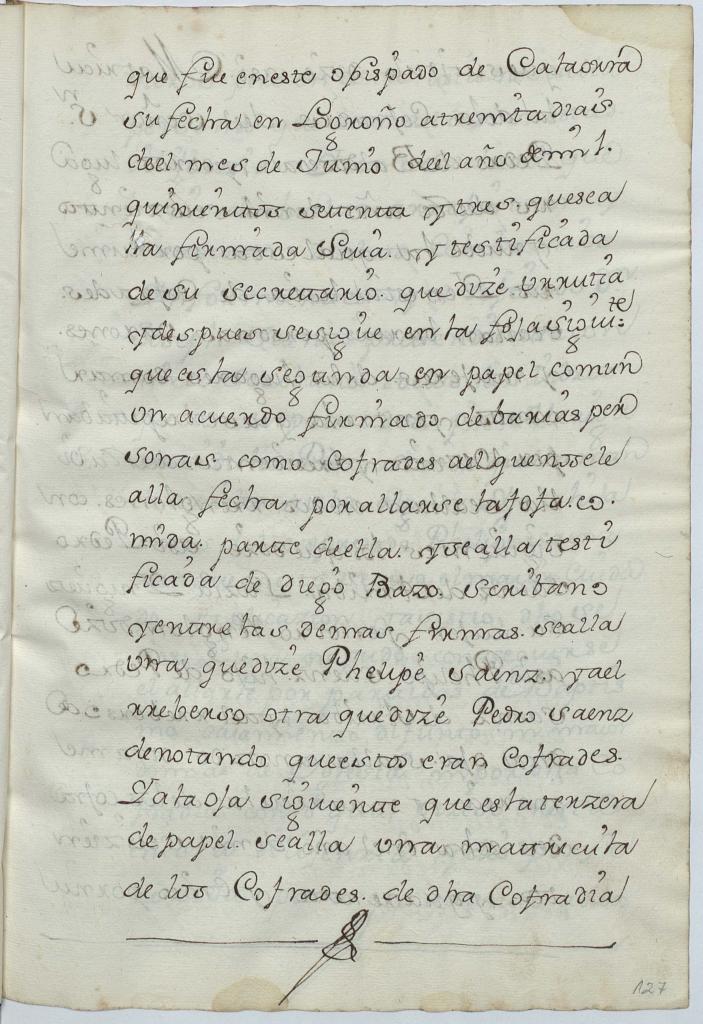 que fue eneste obispado de Cataorra
su fecha en Logroño atreinta dias
deel mes de Junio deel año demil.
quinienttos settentta ytres. quesea
lla firmada Suia. ytestificada
de su secrettario. quedize Urrutia
ydespues sesigue en la foja siguite.
que esta segunda en papel comun
un acuerdo firmado debarias per
sonas como Cofrades ael quenosele
alla fecha porallarse lafoja. co.
mida. partte deella. ysealla testi
ficada de Diego Bazo. scribano
yenttre las demas firmas. sealla
una quedize Phelipe Saenz. yael
rreberso otra quedize Pedro Saenz
denotando queestos eran Cofrades.
Yala oja siguientte que esta terzera
de papel. sealla una mattricula
de los Cofrades. de dha Cofradia
127